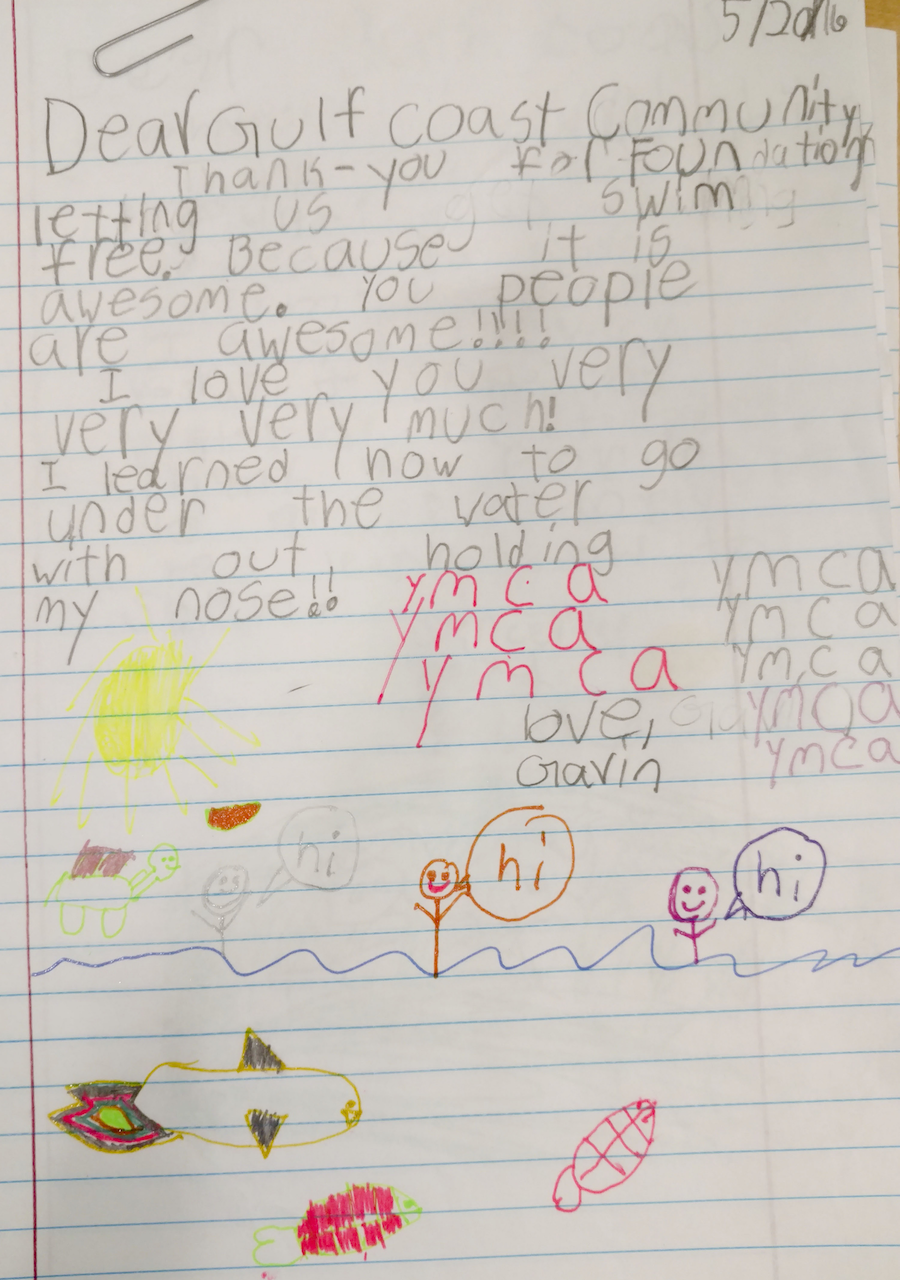 5/20/16
Dear Gulf coast Community
Thank-you for Foundation
letting us swim
free. Because it is
awesome. you people
are awesome!!!!
I love you very
very very much!
I learned how to go
under the water
with out holding
my nose!!
ymca ymca
ymca ymca
ymca ymca
love, ymca
Gavin ymca
hi hi hi